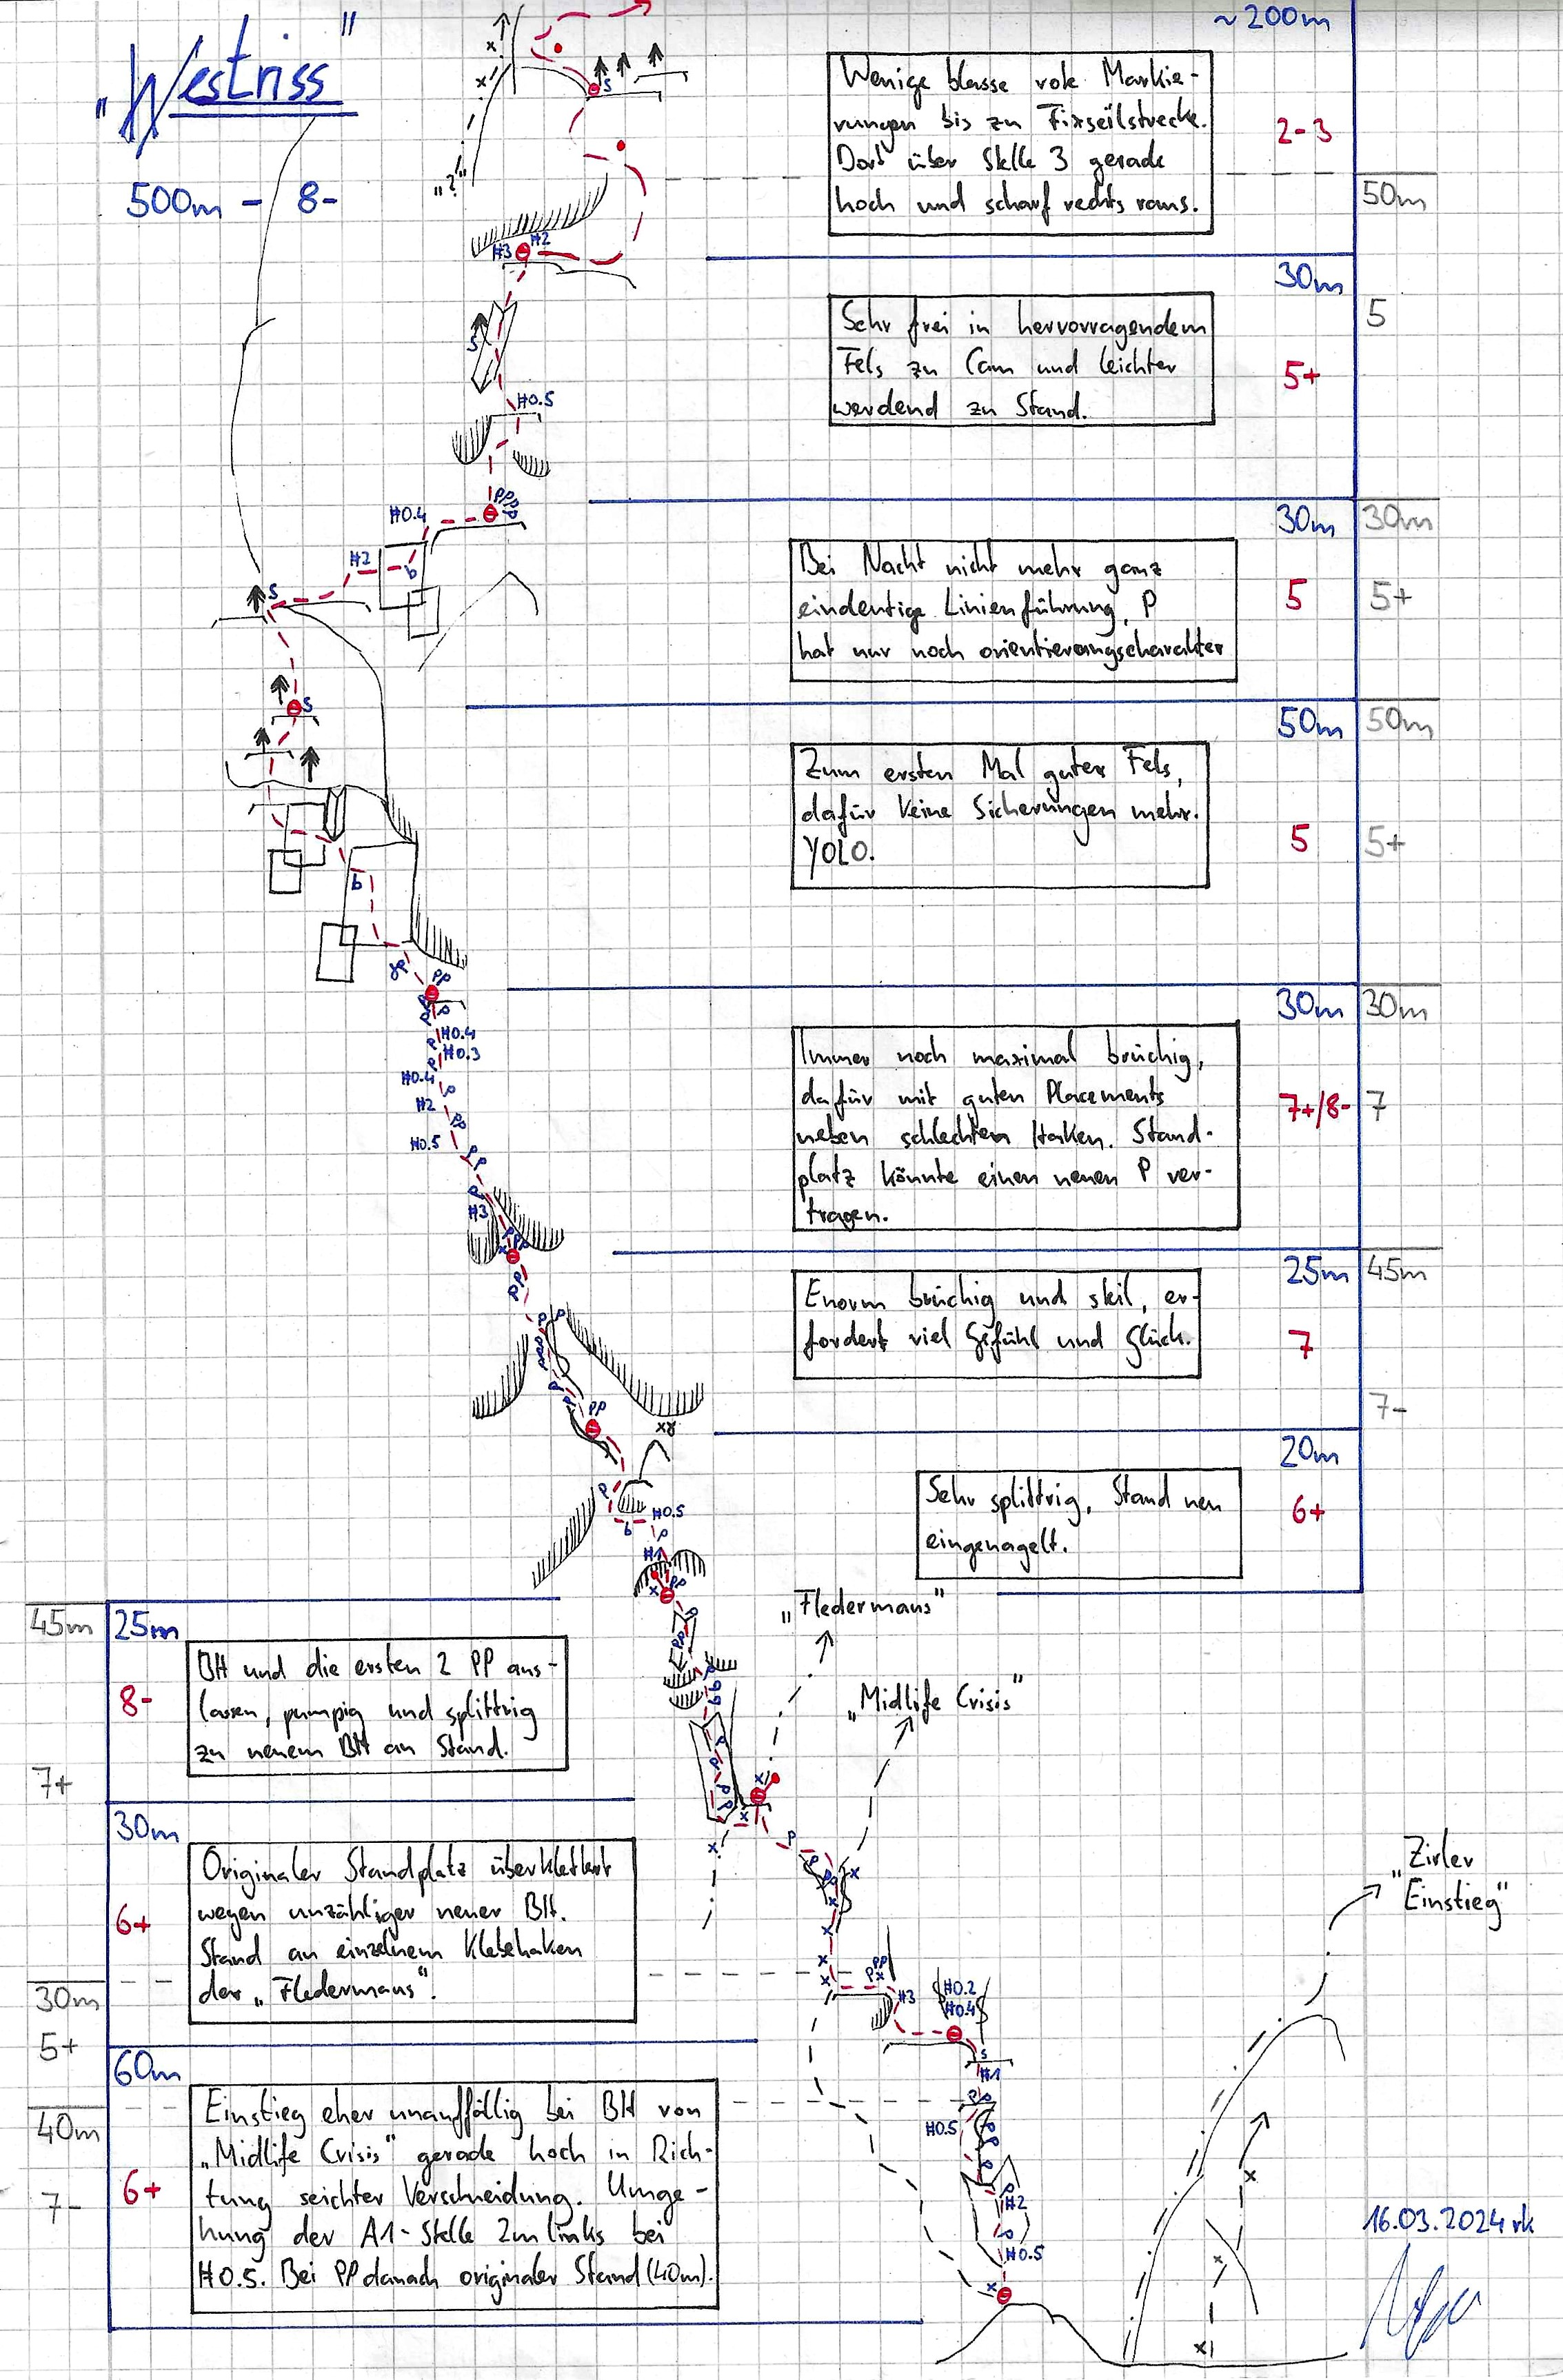 „Westriss"
500m - 8-
~200m
Wenige blasse rote Markie-
rungen bis zu Fixseilstrecke.
Dort über Stelle 3 gerade
hoch und scharf rechts raus.
2-3
50m
„?"
S
H3 H2
30m
5
Sehr frei in hervorragendem
Fels zu Cam und leichter
werdend zu Stand.
5+
S
H0.5
PPP
H0.4
H2
b
S
30m 30m
Bei Nacht nicht mehr ganz
eindeutige Linienführung, P
hat nur noch orientierungscharakter
5 5+
S
50m 50m
Zum ersten Mal guter Fels,
dafür keine Sicherungen mehr.
YOLO.
5 5+
b
PP
30m 30m
Immer noch maximal brüchig,
dafür mit guten Placements
neben schlechten Haken. Stand-
platz könnte einen neuen P ver-
tragen.
7+/8- 7
H0.4
H0.3
H0.4
H2
H0.5
PP
H3
25m 45m
Enorm brüchig und steil, er-
fordert viel Gefühl und Glück.
7
7-
PP
20m
Sehr splittrig, Stand neu
eingenagelt.
6+
P
H0.5
b
P
H1
PP
„Fledermaus"
„Midlife Crisis"
45m 25m
BH und die ersten 2 PP aus-
lassen, pumpig und splittrig
zu neuem BH an Stand.
8-
7+
30m
Originaler Standplatz überklettert
wegen unzähliger neuer BH.
Stand an einzelnem Klebehaken
der „Fledermaus".
6+
30m
5+
P
PP
H3
H0.2
H0.4
S
H1
„Zirler
Einstieg"
60m
Einstieg eher unauffällig bei BH von
„Midlife Crisis" gerade hoch in Rich-
tung seichter Verschneidung. Umge-
hung der A1-Stelle 2m links bei
H0.5. Bei PP danach originaler Stand (40m).
6+
40m
7-
H0.5
H2
H0.5
16.03.2024 rk